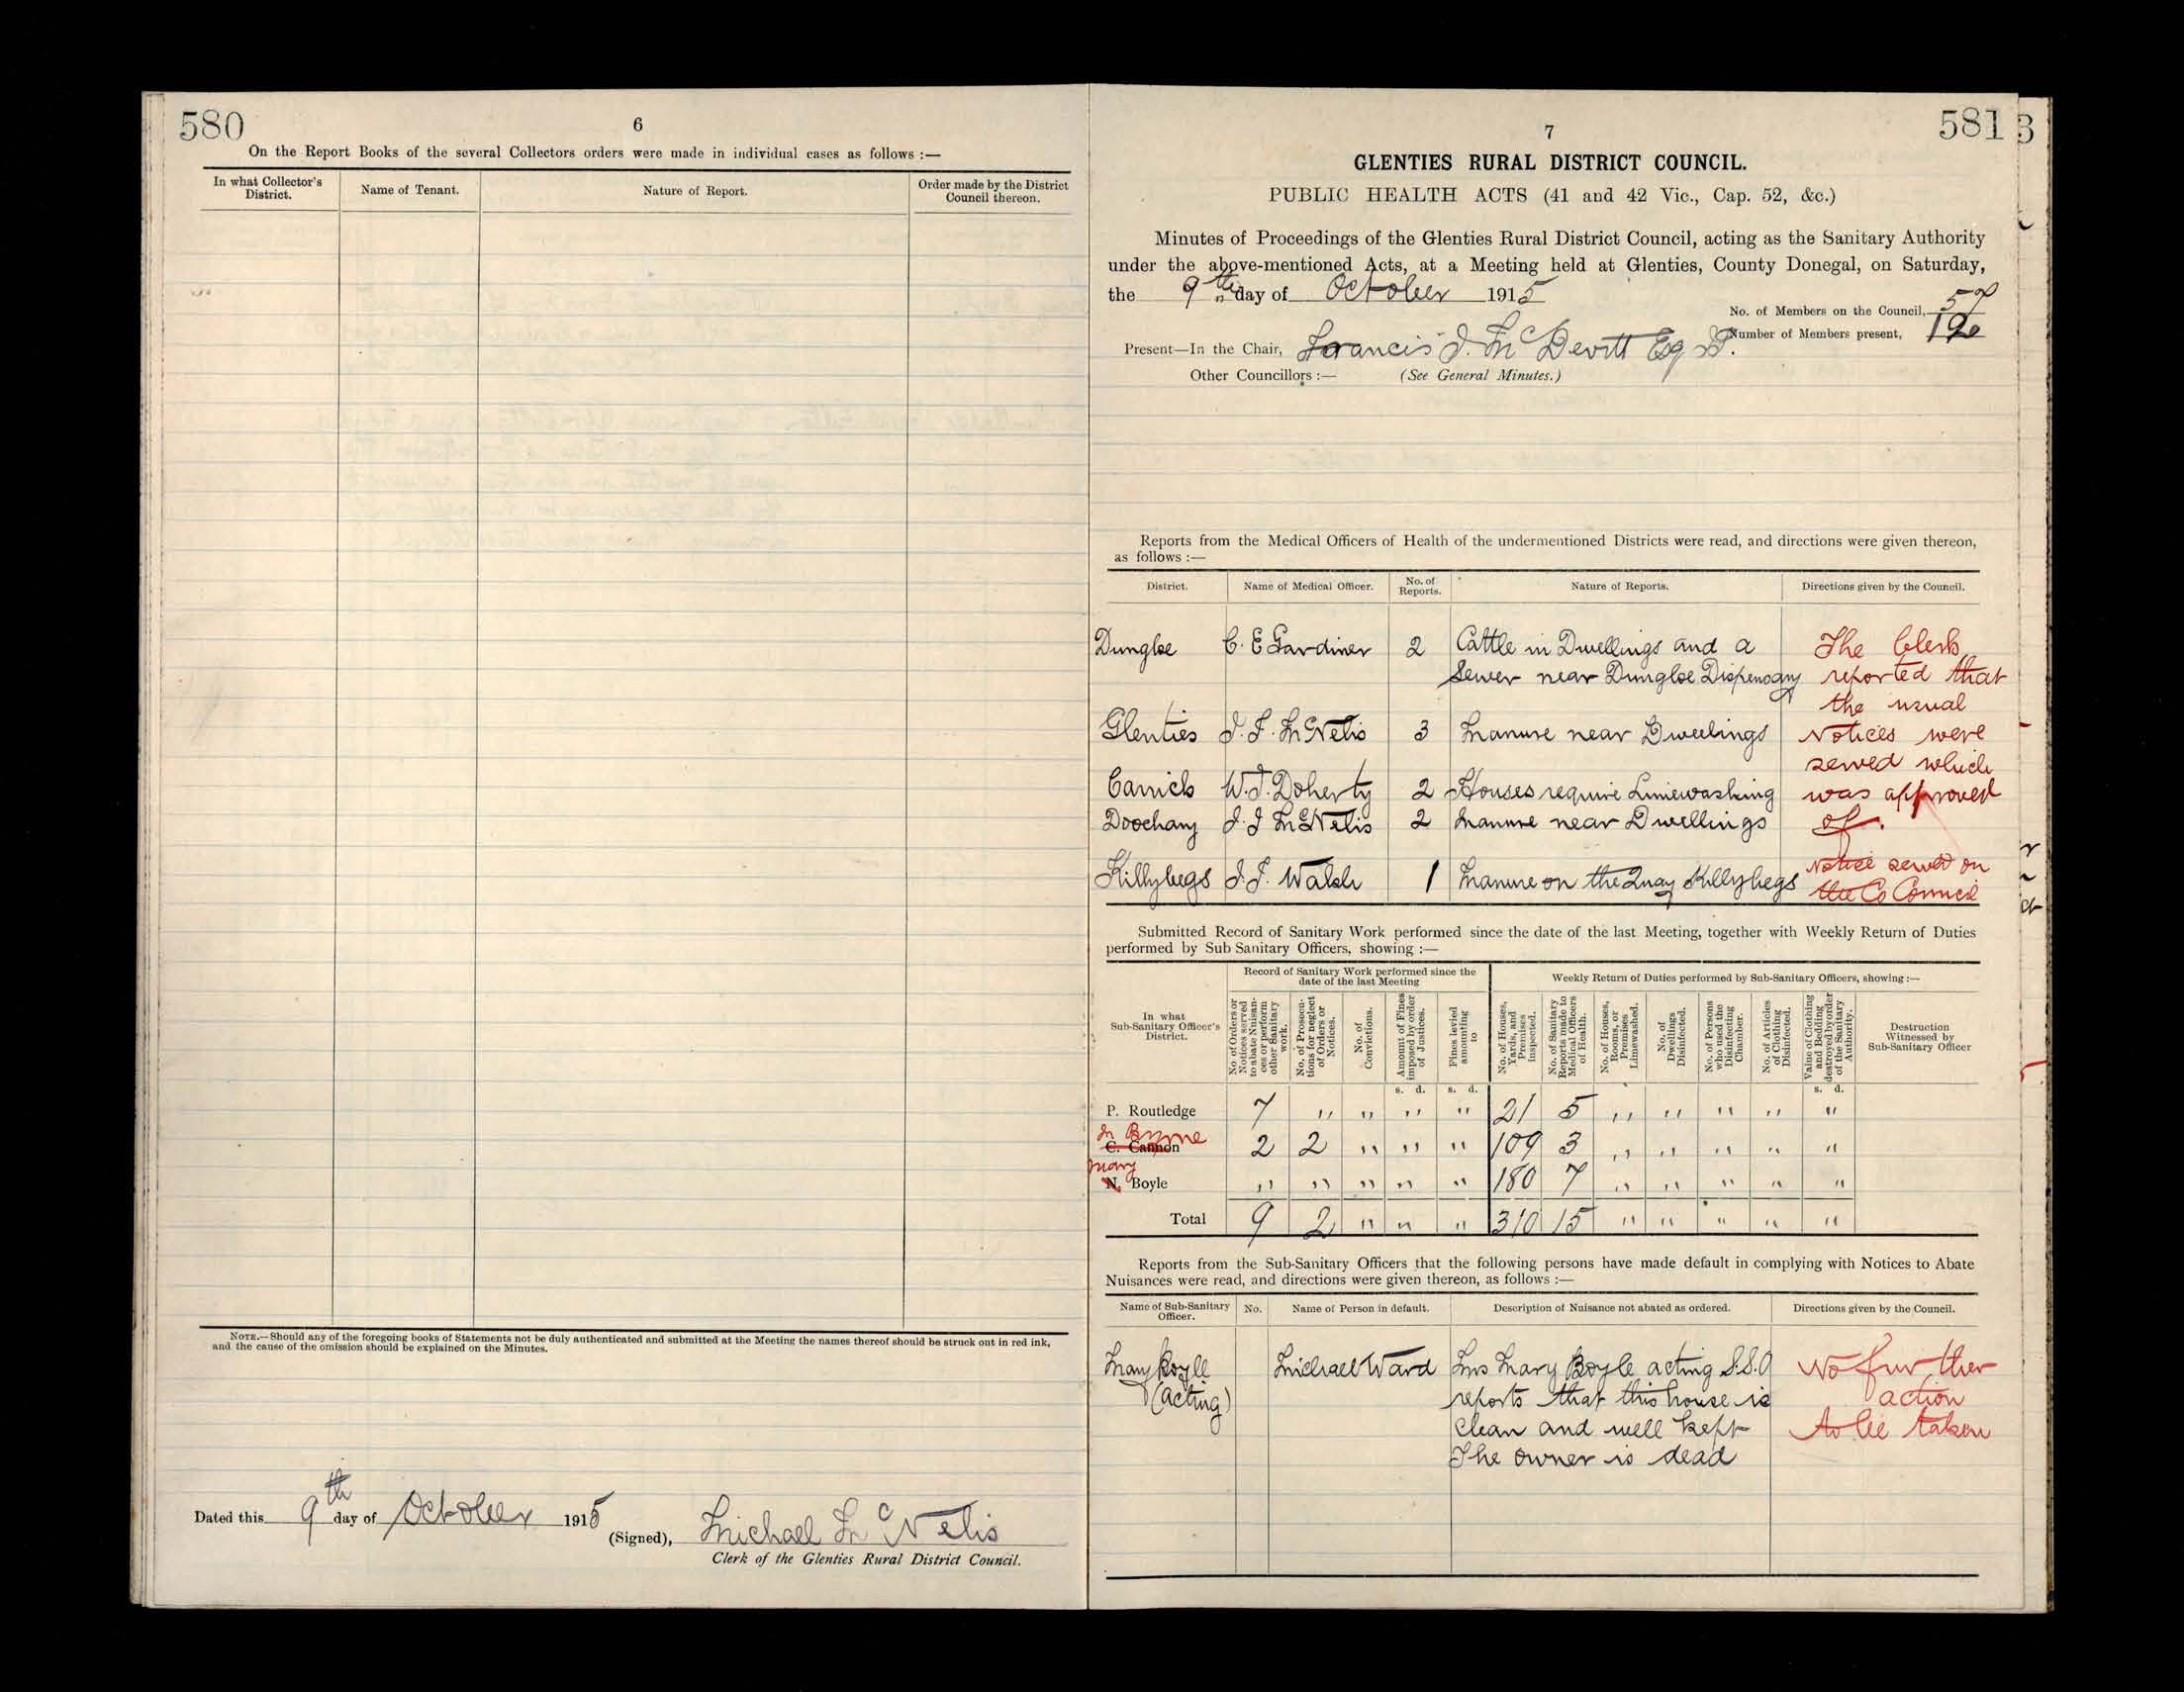 580
6
On the Report Books of the several Collectors orders were made in individual cases as follows :—
In what Collector's District.
Name of Tenant.
Nature of Report.
Order made by the District Council thereon.
NOTE.—Should any of the foregoing books of Statements not be duly authenticated and submitted at the Meeting the names thereof should be struck out in red ink,
and the cause of the omission should be explained on the Minutes.
Dated this 9th day of October 1915
(Signed), Michael McNelis
Clerk of the Glenties Rural District Council.
581
3
7
GLENTIES RURAL DISTRICT COUNCIL.
PUBLIC HEALTH ACTS (41 and 42 Vic., Cap. 52, &c.)
Minutes of Proceedings of the Glenties Rural District Council, acting as the Sanitary Authority
under the above-mentioned Acts, at a Meeting held at Glenties, County Donegal, on Saturday,
the 9th day of October 1915
No. of Members on the Council,
Number of Members present,
Present—In the Chair, Francis J. McDevitt Esq
Other Councillors :— (See General Minutes.)
Reports from the Medical Officers of Health of the undermentioned Districts were read, and directions were given thereon,
as follows :—
District. Name of Medical Officer. No. of Reports. Nature of Reports. Directions given by the Council.
Dungloe C. E Gardiner 2 Cattle in Dwellings and a The Clerk
Sewer near Dungloe Dispensary reported that
the usual
Glenties J. F. McNelis 3 Manure near Dwellings Notices were
served which
Carrick W. J. Doherty 2 Houses require Limewashing was approved
Doochary J. J McNelis 2 Manure near Dwellings of.
Killybegs J. F. Walsh 1 Manure on the Quay Killybegs Notice served on
the Co Council
Submitted Record of Sanitary Work performed since the date of the last Meeting, together with Weekly Return of Duties
performed by Sub Sanitary Officers, showing :—
In what Sub-Sanitary Officer's District.
Record of Sanitary Work performed since the date of the last Meeting
Weekly Return of Duties performed by Sub-Sanitary Officers, showing :—
No. of Orders or Notices served to abate Nuisances or perform other Sanitary work.
No. of Prosecutions for neglect of Orders or Notices.
No. of Convictions.
Amount of Fines imposed by order of Justices.
Fines levied amounting to
No. of Houses, Yards, and Premises inspected.
No. of Sanitary Reports made to Medical Officers of Health.
No. of Houses, Rooms, or Premises Limewashed.
No. of Dwellings Disinfected.
No. of Persons who used the Disinfecting Chamber.
No. of Articles of Clothing Disinfected.
Value of Clothing and Bedding destroyed by order of the Sanitary Authority.
Destruction Witnessed by Sub-Sanitary Officer
s. d. s. d. s. d.
P. Routledge 7 " " " " 21 5 " " " " "
M Byrne
C. Cannon 2 2 " " " 109 3 " " " " "
Mary
N. Boyle " " " " " 180 7 " " " " "
Total 9 2 " " " 310 15 " " " " "
Reports from the Sub-Sanitary Officers that the following persons have made default in complying with Notices to Abate
Nuisances were read, and directions were given thereon, as follows :—
Name of Sub-Sanitary Officer. No. Name of Person in default. Description of Nuisance not abated as ordered. Directions given by the Council.
Mary Boyle Michael Ward Mrs Mary Boyle acting S.S.O No further
(acting) reports that this house is action
clean and well kept to be taken
The owner is dead